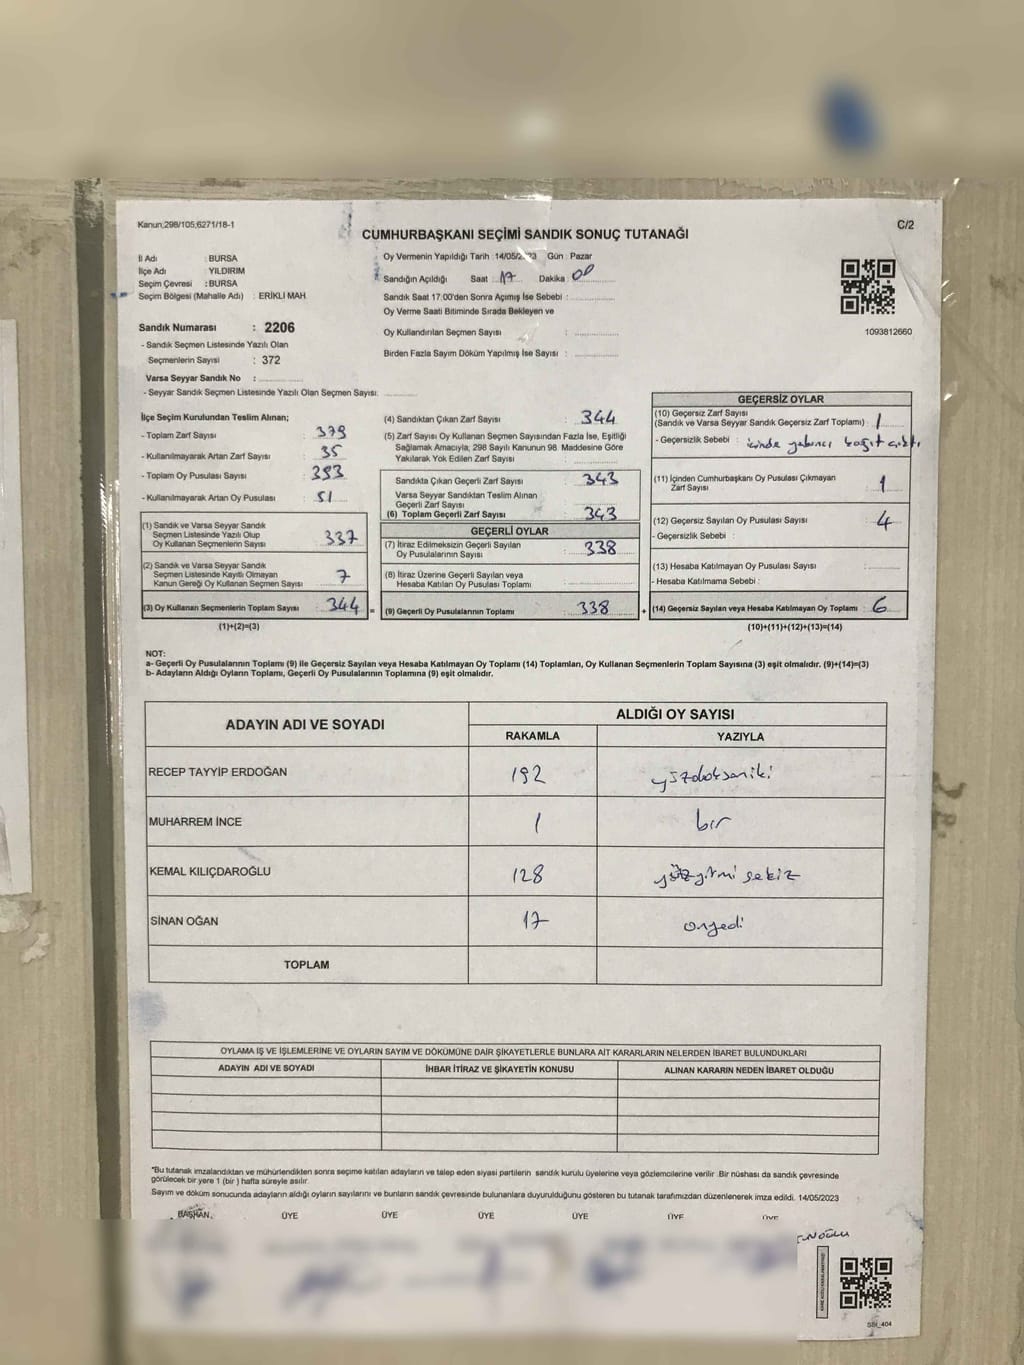 Kanun;298/105,6271/18-1
C/2
CUMHURBAŞKANI SEÇİMİ SANDIK SONUÇ TUTANAĞI
İl Adı : BURSA
İlçe Adı : YILDIRIM
Seçim Çevresi : BURSA
Seçim Bölgesi (Mahalle Adı) : ERİKLİ MAH
Sandık Numarası : 2206
- Sandık Seçmen Listesinde Yazılı Olan
Seçmenlerin Sayısı : 372
Varsa Seyyar Sandık No :
- Seyyar Sandık Seçmen Listesinde Yazılı Olan Seçmen Sayısı:
Oy Vermenin Yapıldığı Tarih : 14/05/2023 Gün : Pazar
Sandığın Açıldığı Saat : 17 Dakika : 00
Sandık Saat 17:00'den Sonra Açımış İse Sebebi :
Oy Verme Saati Bitiminde Sırada Bekleyen ve
Oy Kullandırılan Seçmen Sayısı :
Birden Fazla Sayım Döküm Yapılmış İse Sayısı :
1093812660
İlçe Seçim Kurulundan Teslim Alınan;
- Toplam Zarf Sayısı : 379
- Kullanılmayarak Artan Zarf Sayısı : 35
- Toplam Oy Pusulası Sayısı : 393
- Kullanılmayarak Artan Oy Pusulası : 51
(1) Sandık ve Varsa Seyyar Sandık
Seçmen Listesinde Yazılı Olup
Oy Kullanan Seçmenlerin Sayısı : 337
(2) Sandık ve Varsa Seyyar Sandık
Seçmen Listesinde Kayıtlı Olmayan
Kanun Gereği Oy Kullanan Seçmen Sayısı : 7
(3) Oy Kullanan Seçmenlerin Toplam Sayısı : 344 =
(1)+(2)=(3)
(4) Sandıktan Çıkan Zarf Sayısı : 344
(5) Zarf Sayısı Oy Kullanan Seçmen Sayısından Fazla İse, Eşitliği
Sağlamak Amacıyla, 298 Sayılı Kanunun 98. Maddesine Göre
Yakılarak Yok Edilen Zarf Sayısı :
Sandıkta Çıkan Geçerli Zarf Sayısı : 343
Varsa Seyyar Sandıktan Teslim Alınan
Geçerli Zarf Sayısı :
(6) Toplam Geçerli Zarf Sayısı : 343
GEÇERLİ OYLAR
(7) İtiraz Edilmeksizin Geçerli Sayılan
Oy Pusulalarının Sayısı : 338
(8) İtiraz Üzerine Geçerli Sayılan veya
Hesaba Katılan Oy Pusulası Toplamı :
(9) Geçerli Oy Pusulalarının Toplamı : 338 +
GEÇERSİZ OYLAR
(10) Geçersiz Zarf Sayısı
(Sandık ve Varsa Seyyar Sandık Geçersiz Zarf Toplamı) : 1
- Geçersizlik Sebebi : içinde yabancı kağıt çıktı
(11) İçinden Cumhurbaşkanı Oy Pusulası Çıkmayan
Zarf Sayısı : 1
(12) Geçersiz Sayılan Oy Pusulası Sayısı : 4
- Geçersizlik Sebebi :
(13) Hesaba Katılmayan Oy Pusulası Sayısı :
- Hesaba Katılmama Sebebi :
(14) Geçersiz Sayılan veya Hesaba Katılmayan Oy Toplamı : 6
(10)+(11)+(12)+(13)=(14)
NOT:
a- Geçerli Oy Pusulalarının Toplamı (9) ile Geçersiz Sayılan veya Hesaba Katılmayan Oy Toplamı (14) Toplamları, Oy Kullanan Seçmenlerin Toplam Sayısına (3) eşit olmalıdır. (9)+(14)=(3)
b- Adayların Aldığı Oyların Toplamı, Geçerli Oy Pusulalarının Toplamına (9) eşit olmalıdır.
ADAYIN ADI VE SOYADI
ALDIĞI OY SAYISI
RAKAMLA YAZIYLA
RECEP TAYYİP ERDOĞAN 192 yüzdoksaniki
MUHARREM İNCE 1 bir
KEMAL KILIÇDAROĞLU 128 yüzyirmi sekiz
SİNAN OĞAN 17 onyedi
TOPLAM
OYLAMA İŞ VE İŞLEMLERİNE VE OYLARIN SAYIM VE DÖKÜMÜNE DAİR ŞİKAYETLERLE BUNLARA AİT KARARLARIN NELERDEN İBARET BULUNDUKLARI
ADAYIN ADI VE SOYADI İHBAR İTİRAZ VE ŞİKAYETİN KONUSU ALINAN KARARIN NEDEN İBARET OLDUĞU
"Bu tutanak imzalandıktan ve mühürlendikten sonra seçime katılan adayların ve talep eden siyasi partilerin sandık kurulu üyelerine veya gözlemcilerine verilir .Bir nüshası da sandık çevresinde
görülecek bir yere 1 (bir ) hafta süreyle asılır.
Sayım ve döküm sonucunda adayların aldığı oyların sayılarını ve bunların sandık çevresinde bulunanlara duyurulduğunu gösteren bu tutanak tarafımızdan düzenlenerek imza edildi. 14/05/2023
BAŞKAN ÜYE ÜYE ÜYE ÜYE ÜYE ÜYE
SSİ_404